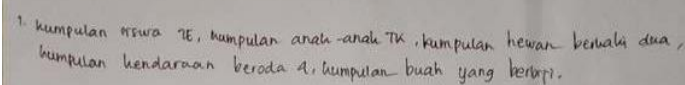 1. kumpulan siswa 7E, kumpulan anak-anak TK, kumpulan hewan berkaki dua,
kumpulan kendaraan beroda 4, kumpulan buah yang